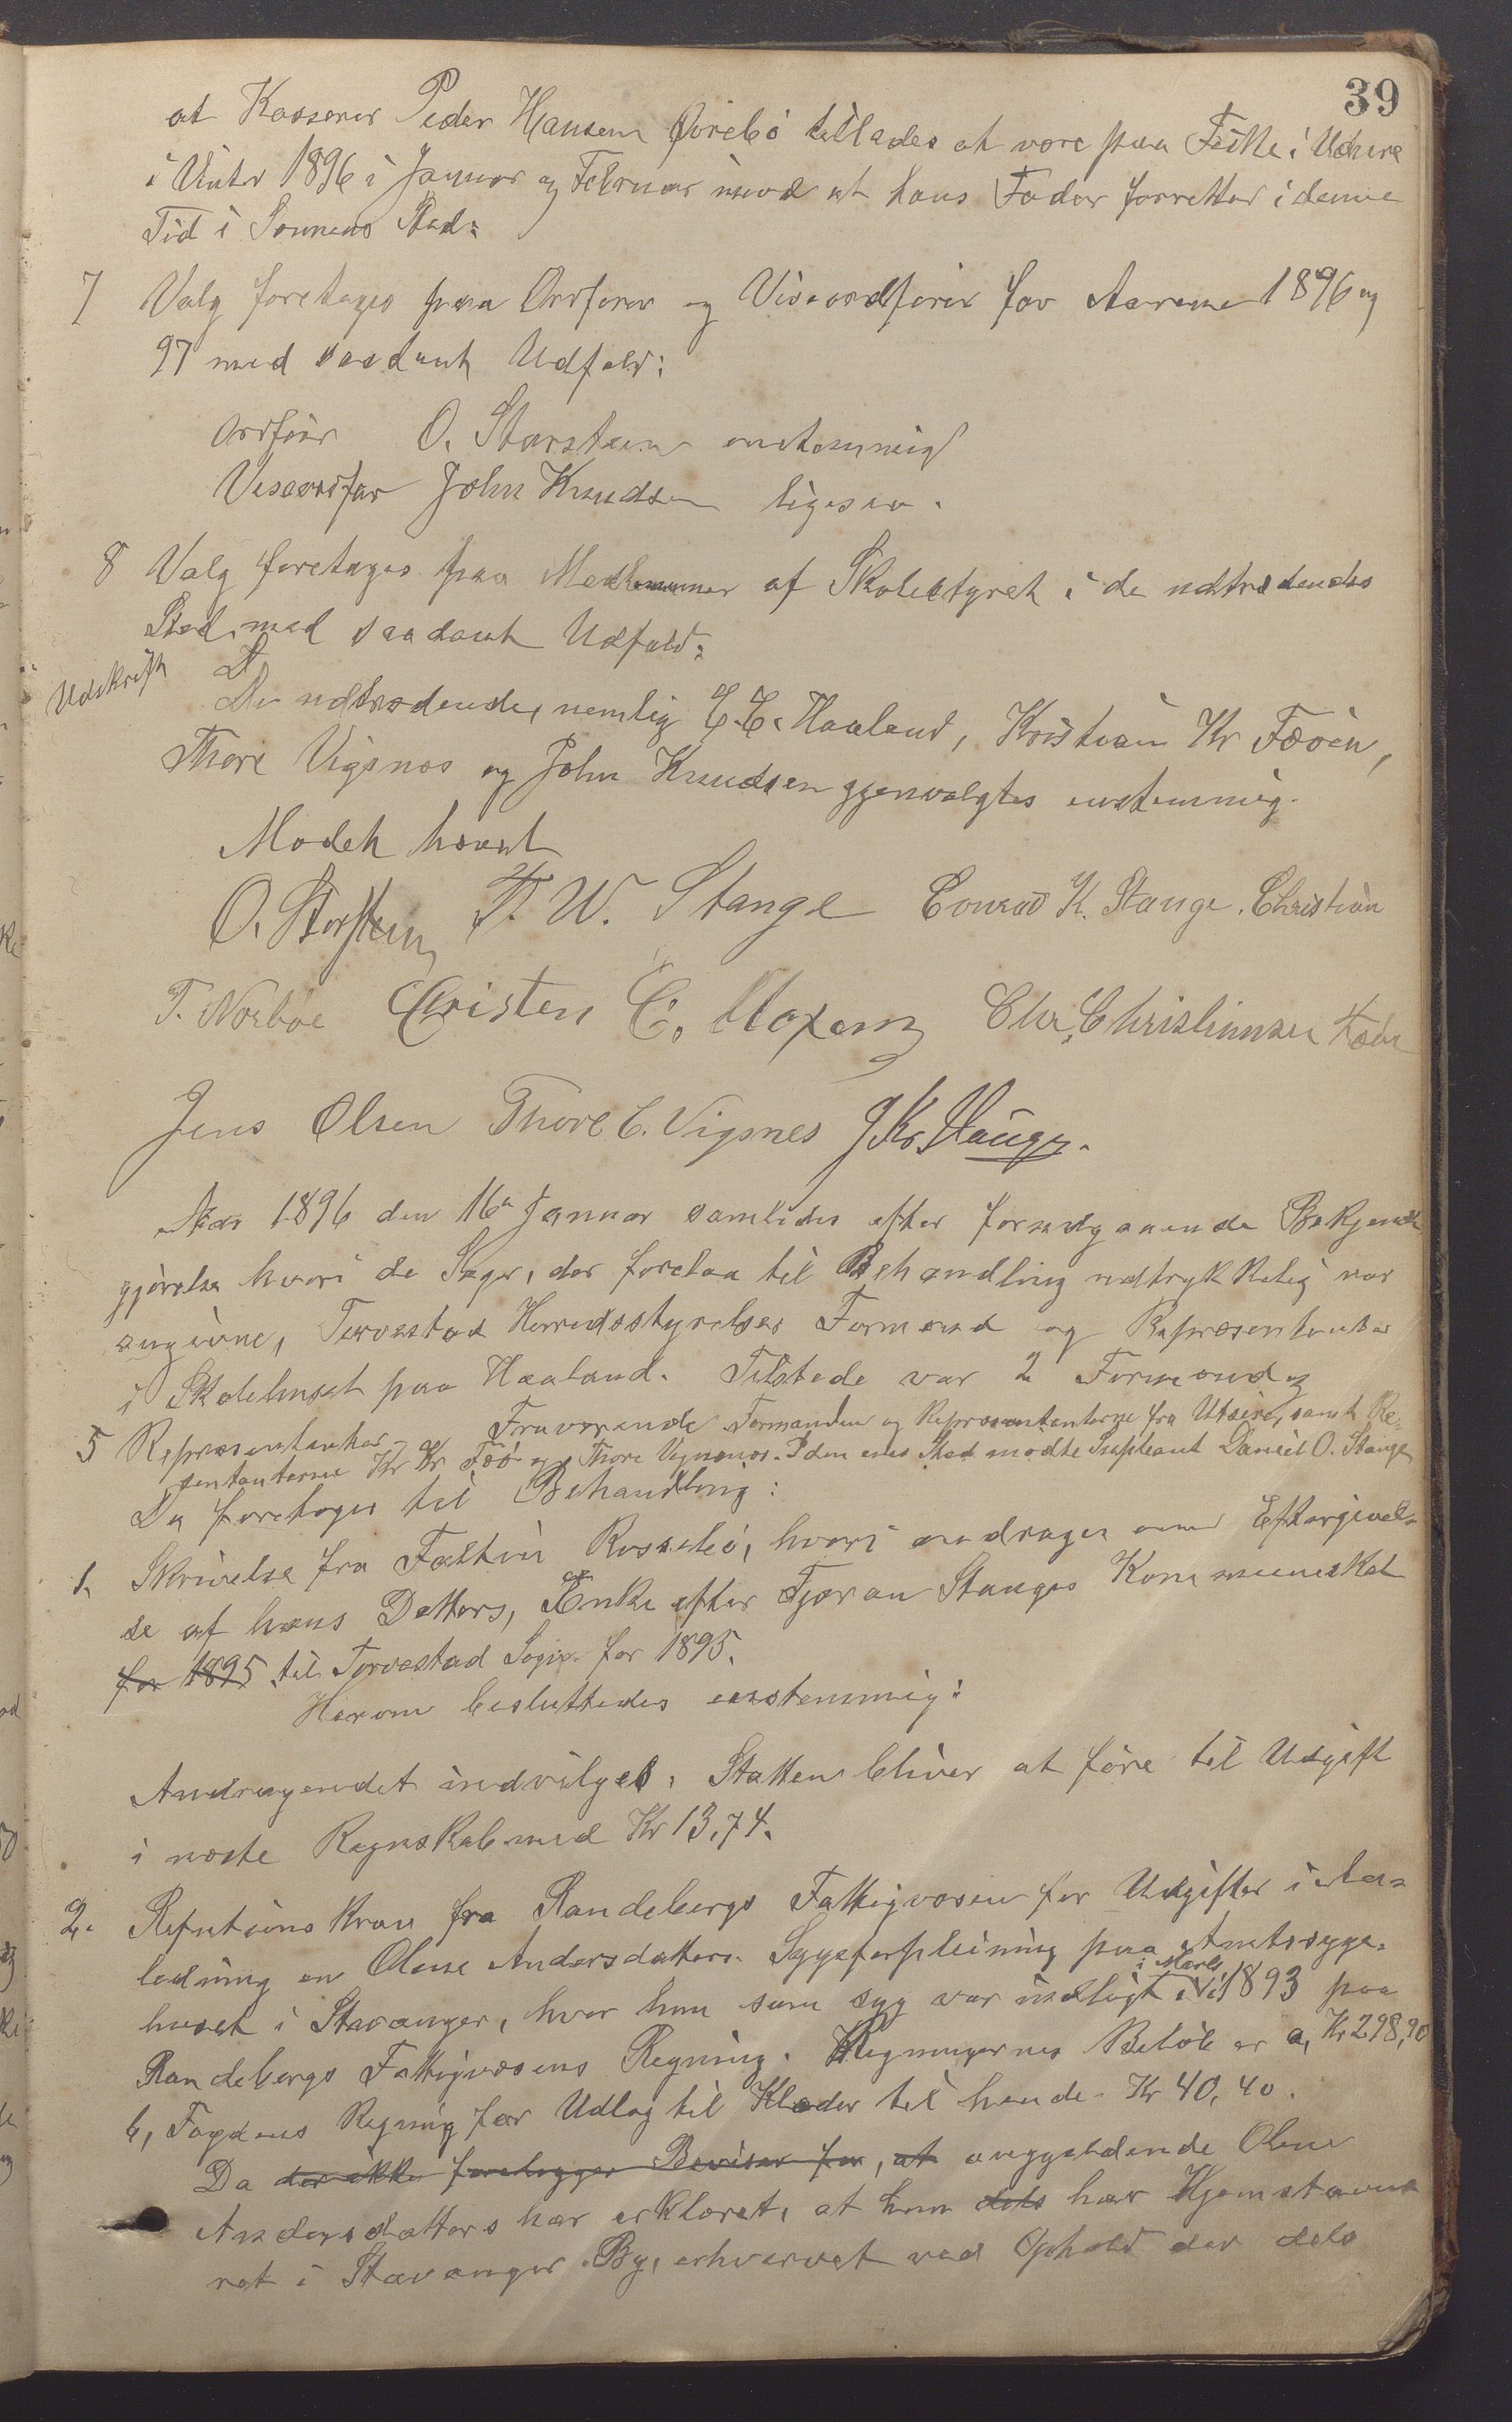 39
at Kasserer Peder Hansen Førebø tillades at være paa Fiske i Udsire
i Vinter 1896 i Januar og Februar imod at hans Fader forretter i denne
Tid i Sønnens Sted.
7 Valg foretages paa Ordfører og Viseordfører for Aarene 1896 og
97 med saadant Udfald:
Ordfører O. Storsteen enstemmig
Viseordfør John Knudsen ligesaa.
8 Valg foretages paa Medlemmer af Skolestyret i de udtrædendes
Sted, med saadant Udfald:
Udskrift
De udtrædende, nemlig E. E. Haaland, Kristian Kr Føøen,
Thore Vigsnæs og John Knudsen gjenvalgtes enstemmig.
Mødet hævet
O. Storsteen T. W. Stange Conrad K. Stange. Christian
T. Norbøe Christen C. Christian Chr. Christiansen
Jens Olsen Thore C. Vigsnes J. Kr. Hauge.
Aar 1896 den 16de Januar samledes efter forudgaaende Bekjendt
gjørelse hvori de Sager, der forelaa til Behandling udtrykkelig var
angivne, Torvestad Herredsstyrelses Formænd og Repræsentanter
i Skolehuset paa Haaland. Tilstede var 2 Formænd og
5 Repræsentanter. Fraværende Formanden og Repræsentanterne fra Utsire, samt Re-
sentanterne Kr Kr Føø og Thore Vigsnæs. I den enes Sted mødte Supleant Daniel O. Stange
Da foretoges til Behandling:
1. Skrivelse fra Faltin Rossebø, hvori andrages om Eftergivel-
se af hans Datters, Enke efter Tjøran Stanges Kommuneskat
for 1895 til Torvestad Sogn for 1895.
Herom besluttedes enstemmig:
Andragendet indvilges, Skatten bliver at føre til Udgift
i næste Regnskab med Kr 13.74.
2. Refutionskrav fra Randebergs Fattigvæsen for Udgifter i An-
ledning en Olene Andersdatters Sygeforpleining paa Amtssyge-
huset i Stavanger, hvor hun som syg var indlagt i Marts 1893 paa
Randebergs Fattigvæsens Regning. Regningernes Beløb er a, Kr 298,90
b, Fogdens Regning for Udlæg til Klæder til hende. Kr 40,40.
Da der ikke forelægger Beviser for, at angjældende Olene
Andersdatters har erklæret, at hun dels har Hjemstavns
ret i Stavanger By, erhvervet ved Ophold der dels